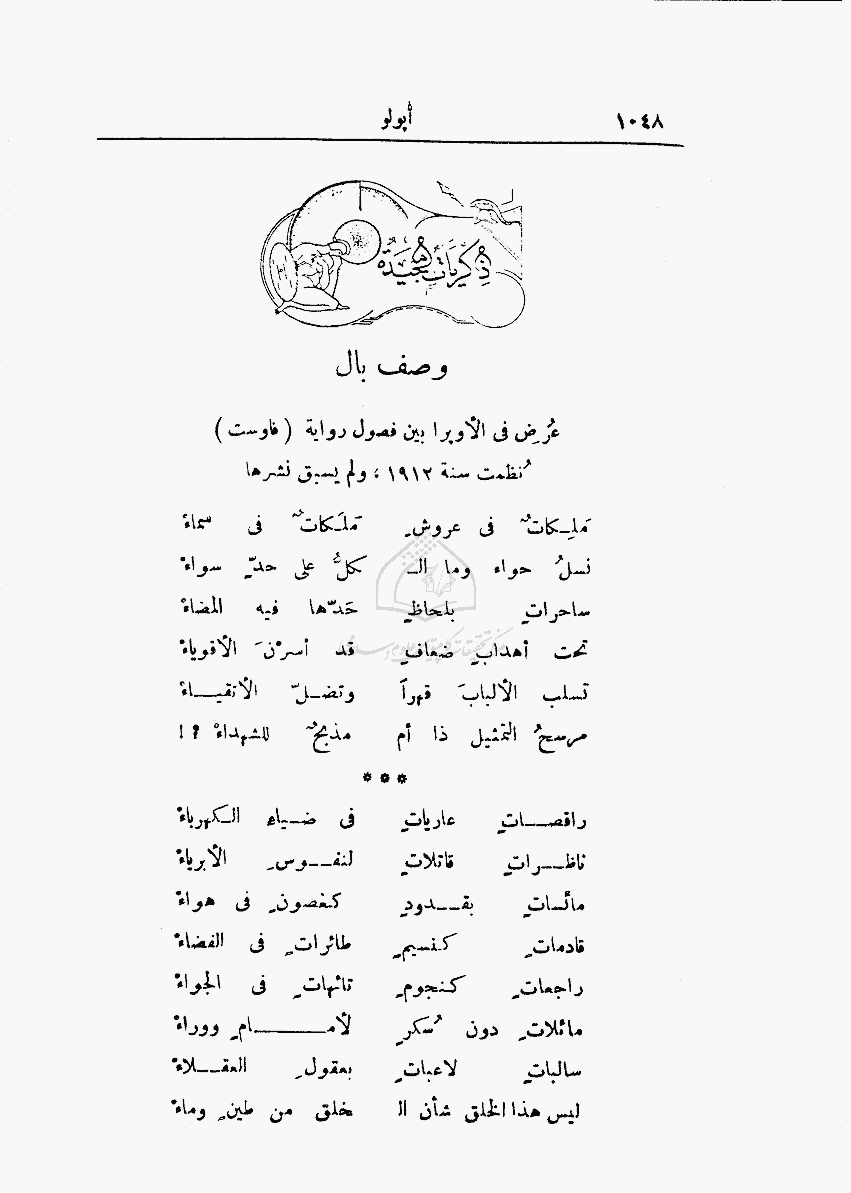 ١٠٤٨ أبولو
ذكريات مجيدة
وصف بال
عُرِض فى الأوبرا بين فصول رواية (فاوست)
نُظمت سنة ١٩١٢، ولم يسبق نشرها
مَلِـكاتٌ فى عروشٍ مَلَـكاتٌ فى سماءْ
نسلُ حواء وما الـ ـكلُّ على حدٍّ سواءْ
ساحراتٍ بلحاظٍ حَدّها فيه المضاءْ
تحت أهدابٍ ضعافٍ قد أسرْنَ الأقوياءْ
تسلب الألبابَ قهراً وتضـلّ الأتقيـاءْ
مرسحُ التمثيل ذا أم مذبحٌ للشهداءْ ؟!
***
راقصـاتٍ عارياتٍ فى ضـياءِ الـكهرباءْ
ناظـراتٍ قاتلاتٍ لنفـوسِ الأبرياءْ
مائساتٍ بقـدودٍ كغصونٍ فى هواءْ
قادماتٍ كـنسيمٍ طائراتٍ فى الفضاءْ
راجعاتٍ كـنجومٍ تائهاتٍ فى الجواءْ
مائلاتٍ دون سُكرٍ لأمـامٍ ووراءْ
سالباتٍ لاعباتٍ بعقولِ العقـلاءْ
ليس هذا الخلق شأن الـ خلق من طينٍ وماءْ